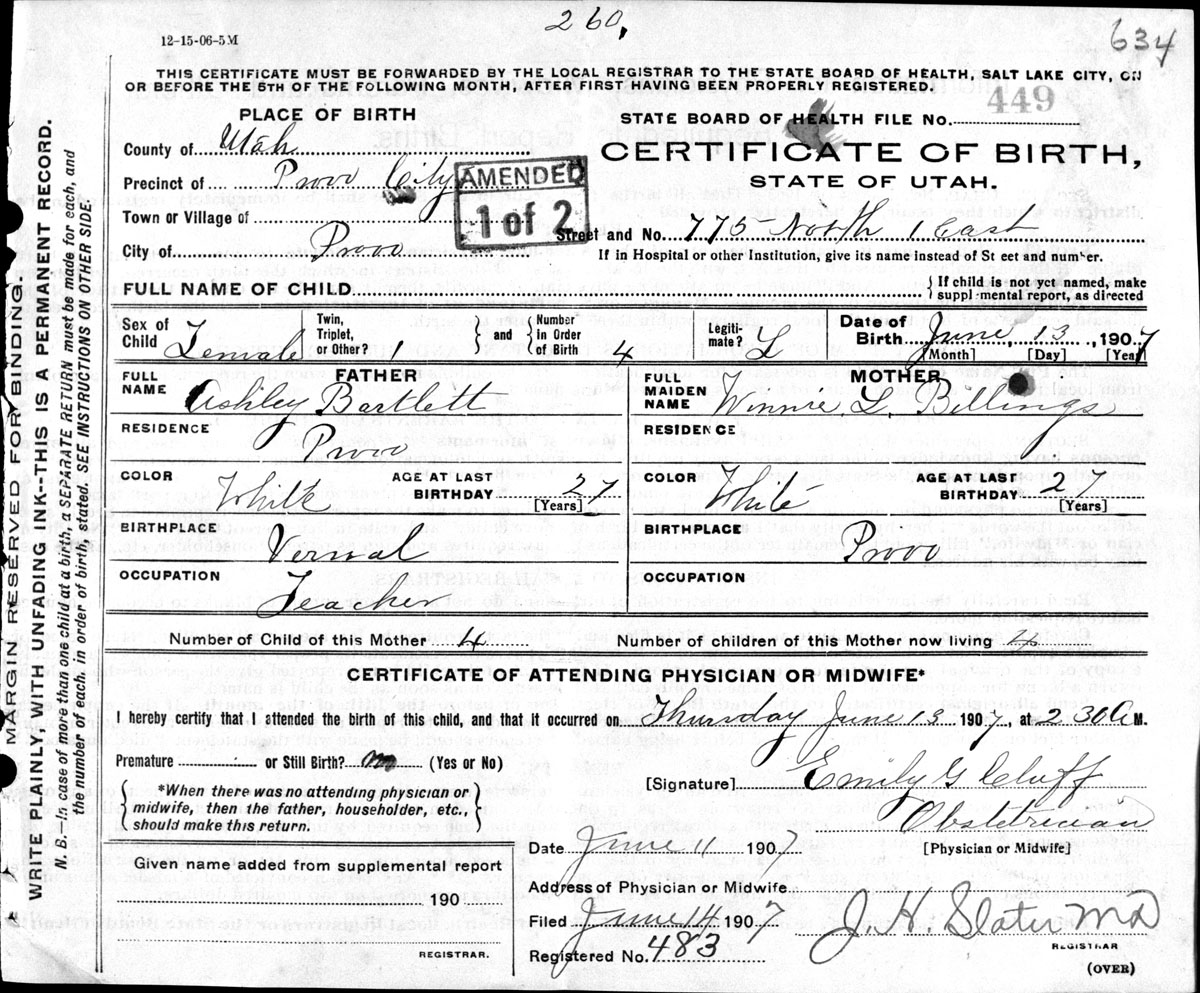 260,
634
12-15-06-5M
THIS CERTIFICATE MUST BE FORWARDED BY THE LOCAL REGISTRAR TO THE STATE BOARD OF HEALTH, SALT LAKE CITY, ON
OR BEFORE THE 5TH OF THE FOLLOWING MONTH, AFTER FIRST HAVING BEEN PROPERLY REGISTERED.
PLACE OF BIRTH
STATE BOARD OF HEALTH FILE No. 449
County of Utah
CERTIFICATE OF BIRTH,
STATE OF UTAH.
Precinct of Provo City
AMENDED
1 of 2
Town or Village of
Street and No. 775 North 1 East
City of Provo
If in Hospital or other Institution, give its name instead of St eet and number.
FULL NAME OF CHILD
{If child is not yet named, make
supplemental report, as directed
Sex of Child Female
Twin, Triplet, or Other? 1
and {Number in Order of Birth 4
Legitimate? L
Date of Birth June 13, 1907
[Month] [Day] [Year]
FATHER
FULL NAME Ashley Bartlett
RESIDENCE Provo
COLOR White AGE AT LAST BIRTHDAY 27 [Years]
BIRTHPLACE Vernal
OCCUPATION Teacher
MOTHER
FULL MAIDEN NAME Winnie L. Billings
RESIDENCE
COLOR White AGE AT LAST BIRTHDAY 27 [Years]
BIRTHPLACE Provo
OCCUPATION
Number of Child of this Mother 4
Number of children of this Mother now living 4
CERTIFICATE OF ATTENDING PHYSICIAN OR MIDWIFE*
I hereby certify that I attended the birth of this child, and that it occurred on Thursday June 13 1907, at 2 30 A M.
Premature or Still Birth? (Yes or No)
{*When there was no attending physician or
midwife, then the father, householder, etc.,
should make this return.}
[Signature] Emily G Cluff
Obstetrician
[Physician or Midwife]
Date June 11 1907
Given name added from supplemental report
190
REGISTRAR.
Address of Physician or Midwife
Filed June 14 1907
Registered No. 483
J. H. Slater MD
REGISTRAR
(OVER)
MARGIN RESERVED FOR BINDING.
WRITE PLAINLY, WITH UNFADING INK--THIS IS A PERMANENT RECORD.
N. B.--In case of more than one child at a birth, a SEPARATE RETURN must be made for each, and
the number of each. in order of birth, stated. SEE INSTRUCTIONS ON OTHER SIDE.